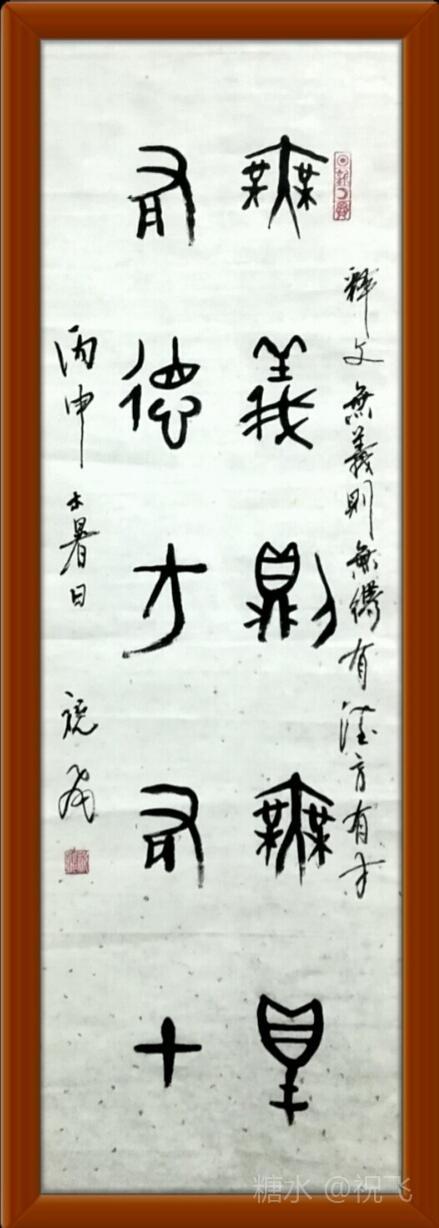 释文 無義則無有德方有才
無義則無
有德方有才
丙申大暑日 祝飛
糖水 @祝飞